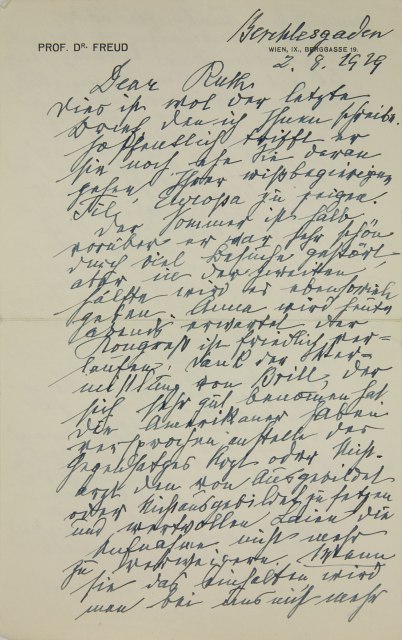 PROF. DR. FREUD
Berchtesgaden
WIEN, IX., BERGGASSE 19.
2. 8. 1929
Dear Ruth
Dies ist wol der letzte
Brief den ich Ihnen schreibe.
Hoffentlich trifft er
Sie noch ehe Sie daran
gehen, Ihrer wißbegierigen
Europa zu zeigen.
Der Sommer ist halb
vorüber, er war sehr schön
durch viel Besuche gestört
aber in der zweiten
Hälfte wird es ebensoviel
geben. Anna wird heute
abends erwartet. Der
Kongreß ist friedlich ver-
laufen, Dank der Ver-
mittlung von Brill, der
sich sehr gut benomen hat.
Die Amerikaner haben
versprochen anstelle des
Gegensatzes Arzt oder Nicht-
arzt den von Ausgebildet
oder Nichtausgebildet zu setzen
und wertvollen Laien die
Aufnahme nicht mehr
zu verweigern. Wenn
sie das einhalten wird
man bei uns nicht mehr